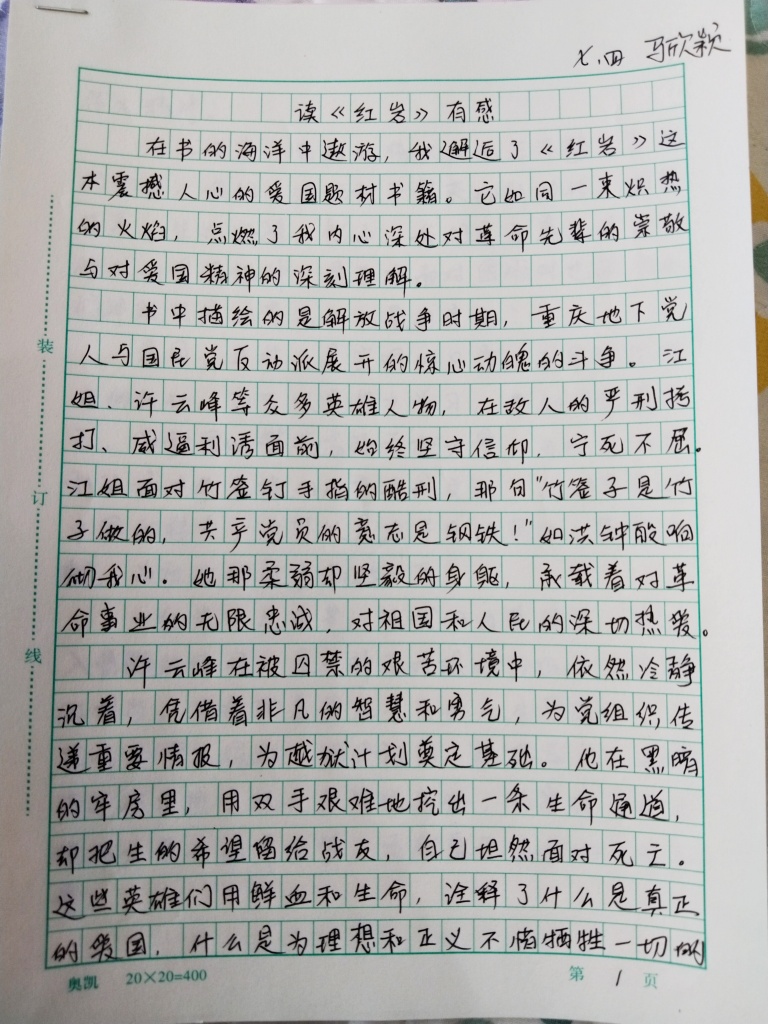 七.四 马欣颖
读《红岩》有感
在书的海洋中遨游，我邂逅了《红岩》这
本震撼人心的爱国题材书籍。它如同一束炽热
的火焰，点燃了我内心深处对革命先辈的崇敬
与对爱国精神的深刻理解。
书中描绘的是解放战争时期，重庆地下党
人与国民党反动派展开的惊心动魄的斗争。江
姐、许云峰等众多英雄人物，在敌人的严刑拷
打、威逼利诱面前，始终坚守信仰，宁死不屈。
江姐面对竹签钉手指的酷刑，那句"竹签子是竹
子做的，共产党员的意志是钢铁！"如洪钟般响
彻我心。她那柔弱却坚毅的身躯，承载着对革
命事业的无限忠诚，对祖国和人民的深切热爱。
许云峰在被囚禁的艰苦环境中，依然冷静
沉着，凭借着非凡的智慧和勇气，为党组织传
递重要情报，为越狱计划奠定基础。他在黑暗
的牢房里，用双手艰难地挖出一条生命通道，
却把生的希望留给战友，自己坦然面对死亡。
这些英雄们用鲜血和生命，诠释了什么是真正
的爱国，什么是为理想和正义不惜牺牲一切的
装
订
线
奥凯 20×20=400 第 1 页